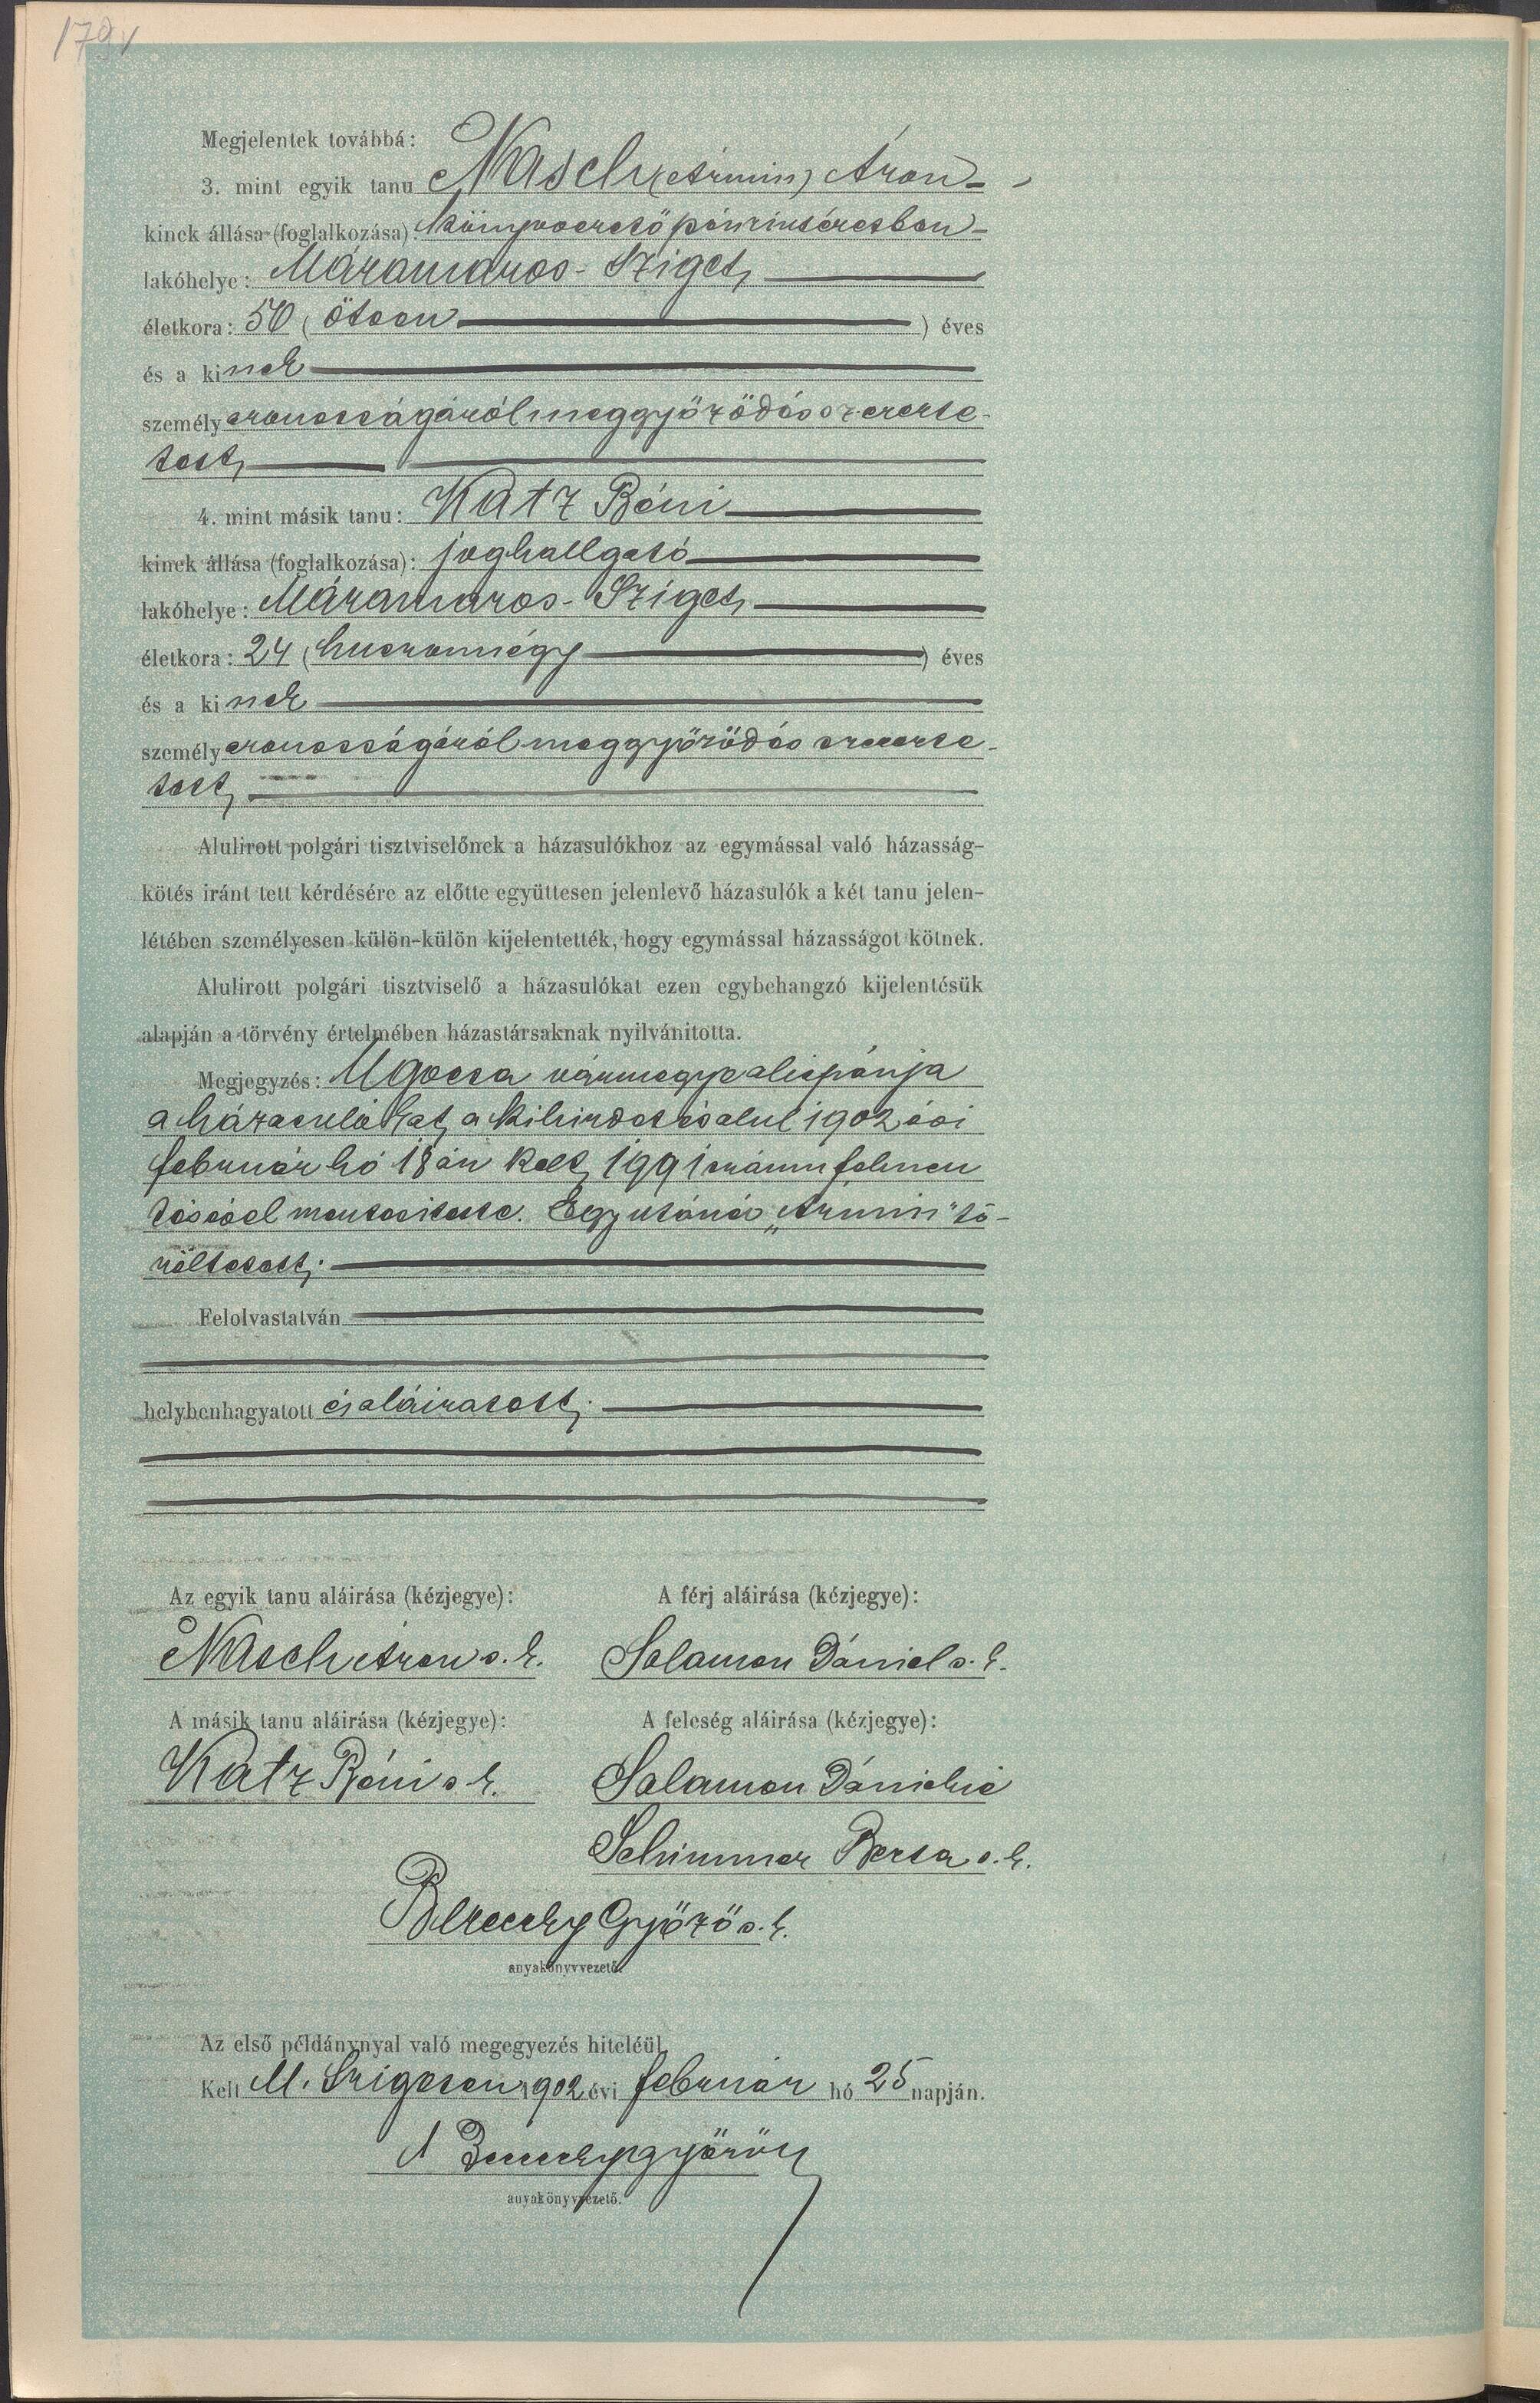 179v
Megjelentek továbbá:
3. mint egyik tanu Nasch (Ármin) Áron
kinek állása (foglalkozása): könyvvezető pénzintézetben
lakóhelye: Máramaros-Sziget,
életkora: 50 (ötven) éves
és a kinek
személyazonosságáról meggyőződés szerezte-
tett,
4. mint másik tanu: Katz Béni
kinek állása (foglalkozása): joghallgató
lakóhelye: Máramaros-Sziget,
életkora: 24 (huszonnégy) éves
és a kinek
személyazonosságáról meggyőződés szerezte-
tett,
Alulirott polgári tisztviselőnek a házasulókhoz az egymással való házasság-
kötés iránt tett kérdésére az előtte együttesen jelenlevő házasulók a két tanu jelen-
létében személyesen külön-külön kijelentették, hogy egymással házasságot kötnek.
Alulirott polgári tisztviselő a házasulókat ezen egybehangzó kijelentésük
alapján a törvény értelmében házastársaknak nyilvánitotta.
Megjegyzés: Ugocsa vármegye alispánja
a házasulókat, a kihirdetés alul 1902 évi
február hó 18 án kelt, 1991 számu felmen
tésével mentesitette. Egy utónév „Ármin" tö-
röltetett;
Felolvastatván
helybenhagyatott és aláiratott;
Az egyik tanu aláirása (kézjegye): A férj aláirása (kézjegye):
Nasch Áron s. k. Salamon Dániel s. k.
A másik tanu aláirása (kézjegye): A feleség aláirása (kézjegye):
Katz Béni s. k. Salamon Dánielné
Schimmer Berta s. k.
Győző s. k.
anyakönyvvezető.
Az első példánynyal való megegyezés hiteléül
Kelt M. Szigeten 1902 évi február hó 25 napján.
anyakönyvvezető.